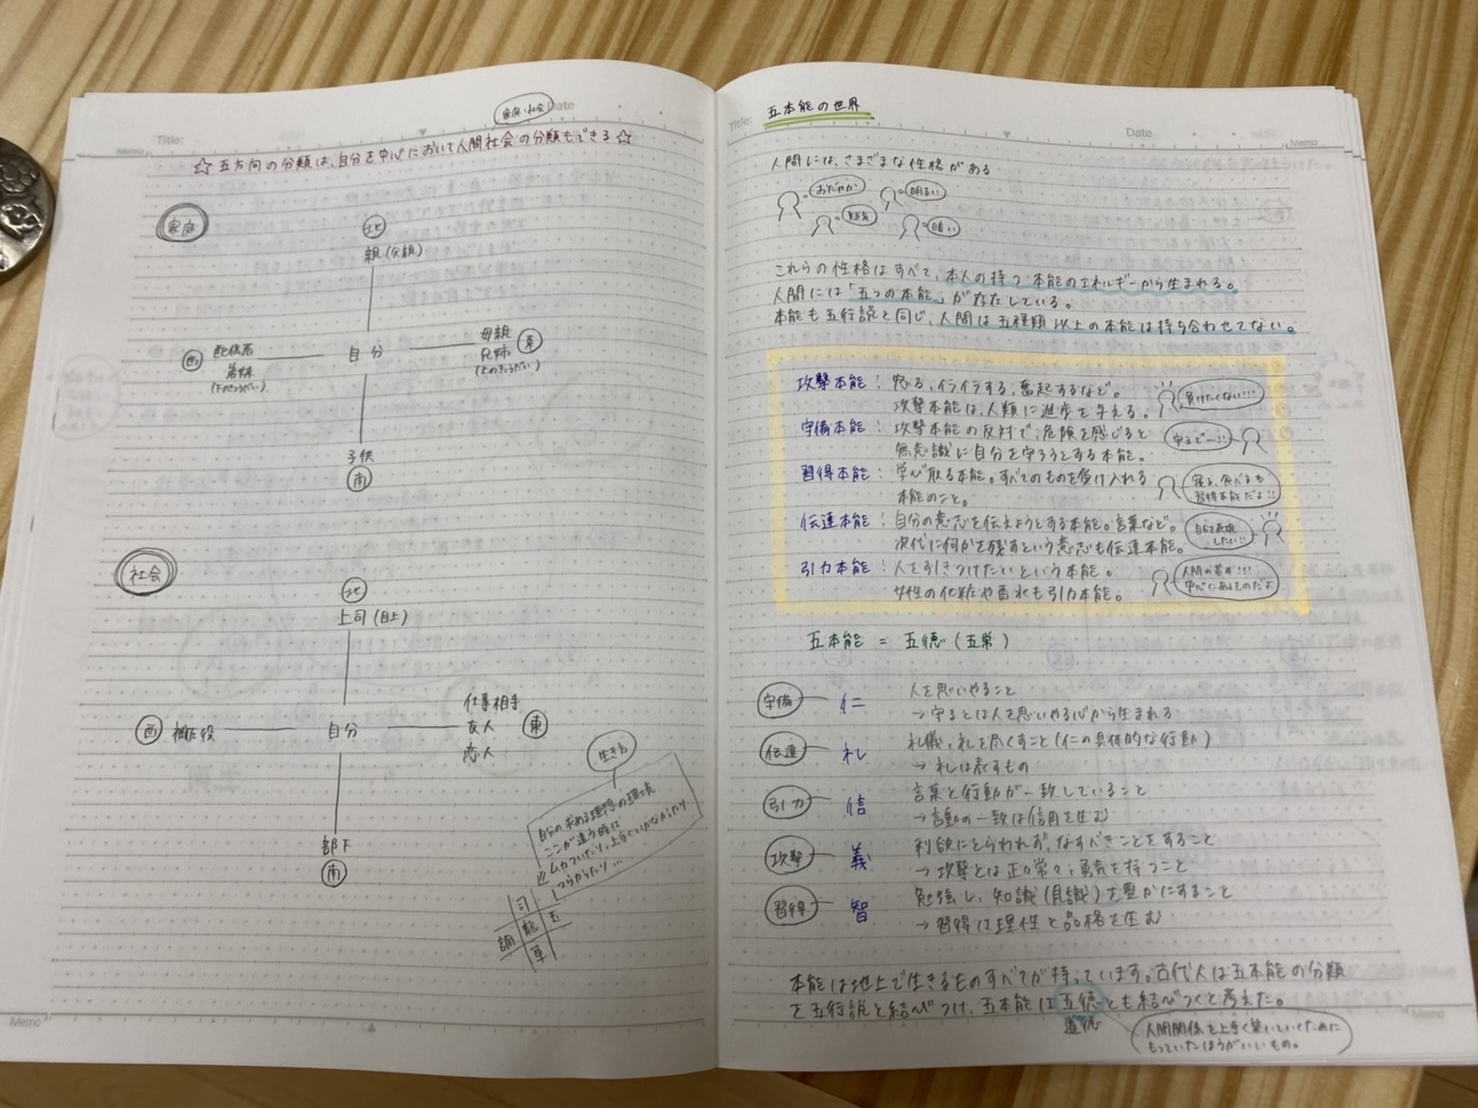 Title:
Memo
家庭・社会
Date
☆ 五方向の分類は、自分を中心において人間社会の分類もできる ☆
家庭
北
親(父親)
西
配偶者
弟妹
(下のきょうだい)
自分
母親
兄姉
(上のきょうだい)
東
子供
南
社会
北
上司(目上)
西
補佐役
自分
仕事相手
友人
恋人
東
部下
南
生き方
自分の求める理想の
ここが違う時は
ムカついたり、上手くいかなかったり
つらかったり…
司
調 龍 玉
車
Memo
Title:
五本能の世界
Date
Memo
人間には、さまざまな性格がある
おだやか
明るい
短気
暗い
これらの性格はすべて、本人の持つ本能のエネルギーから生まれる。
人間には「五つの本能」が存在している。
本能も五行説と同じ、人間は五種類以上の本能は持ち合わせてない。
攻撃本能：怒る、イライラする、奮起するなど。
攻撃本能は、人類に進歩を与える。
負けたくない!!!
守備本能：攻撃本能の反対で、危険を感じると
無意識に自分を守ろうとする本能。
守るぞー!!
習得本能：学び取る本能。すべてのものを受け入れる
本能のこと。
寝る、食べるも
習得本能だよ!!
伝達本能：自分の意志を伝えようとする本能。言葉など。
次代に何かを残すという意志も伝達本能。
自分を表現
したい!!
引力本能：人を引きつけたいという本能。
女性の化粧や香水も引力本能。
人間の
中心にあるものだよ
五本能 = 五徳(五常)
守備 仁 人を思いやること
→ 守るとは人を思いやる心から生まれる
伝達 礼 礼儀、礼を尽くすこと(仁の具体的な行動)
→ 礼は表すもの
引力 信 言葉と行動が一致していること
→ 言動の一致は信用を生む
攻撃 義 利欲にとらわれず、なすべきことをすること
→ 攻撃とは正々堂々、勇気を持つこと
習得 智 勉強し、知識(見識)を豊かにすること
→ 習得は理性と品格を生む
本能は地上で生きるものすべてが持っています。古代人は五本能の分類
を五行説と結びつけ、五本能は五徳とも結びつくと考えた。
道徳
人間関係を上手く築いていくために
もっていたほうがいいもの。
Memo